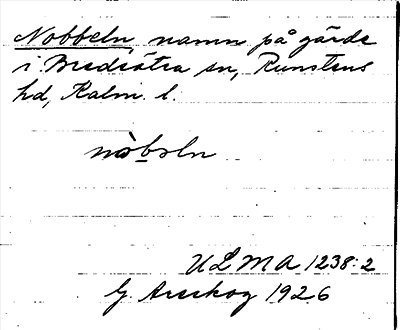 Nobbeln, namn på gärde
i Bredsätra sn, Runstens
hd, Kalm. l.
nòbəln
ULMA 1238:2
G. Areskog 1926